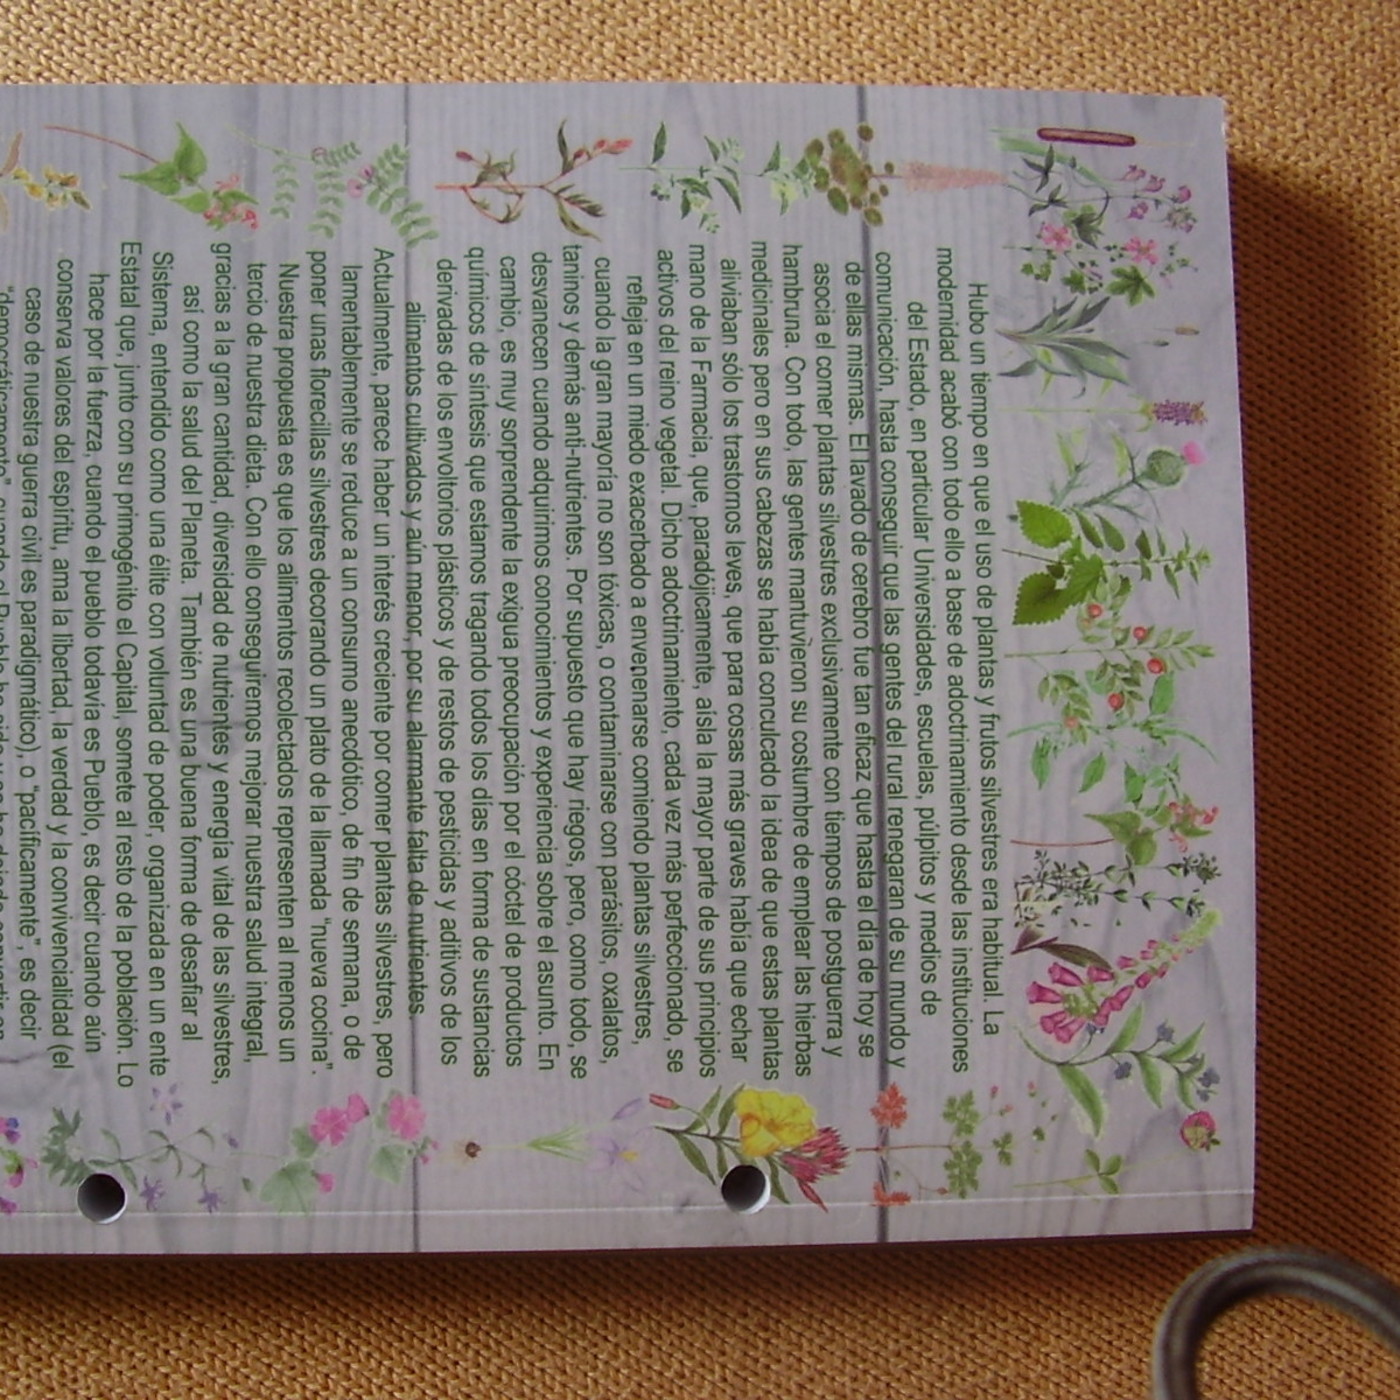 Hubo un tiempo en que el uso de plantas y frutos silvestres era habitual. La
modernidad acabó con todo ello a base de adoctrinamiento desde las instituciones
del Estado, en particular Universidades, escuelas, púlpitos y medios de
comunicación, hasta conseguir que las gentes del rural renegaran de su mundo y
de ellas mismas. El lavado de cerebro fue tan eficaz que hasta el día de hoy se
asocia el comer plantas silvestres exclusivamente con tiempos de postguerra y
hambruna. Con todo, las gentes mantuvieron su costumbre de emplear las hierbas
medicinales pero en sus cabezas se había conculcado la idea de que estas plantas
aliviaban sólo los trastornos leves, que para cosas más graves había que echar
mano de la Farmacia, que, paradójicamente, aisla la mayor parte de sus principios
activos del reino vegetal. Dicho adoctrinamiento, cada vez más perfeccionado, se
refleja en un miedo exacerbado a envenenarse comiendo plantas silvestres,
cuando la gran mayoría no son tóxicas, o contaminarse con parásitos, oxalatos,
taninos y demás anti-nutrientes. Por supuesto que hay riegos, pero, como todo, se
desvanecen cuando adquirimos conocimientos y experiencia sobre el asunto. En
cambio, es muy sorprendente la exigua preocupación por el cóctel de productos
químicos de síntesis que estamos tragando todos los días en forma de sustancias
derivadas de los envoltorios plásticos y de restos de pesticidas y aditivos de los
alimentos cultivados y aún menor, por su alarmante falta de nutrientes.
Actualmente, parece haber un interés creciente por comer plantas silvestres, pero
lamentablemente se reduce a un consumo anecdótico, de fin de semana, o de
poner unas florecillas silvestres decorando un plato de la llamada "nueva cocina".
Nuestra propuesta es que los alimentos recolectados representen al menos un
tercio de nuestra dieta. Con ello conseguiremos mejorar nuestra salud integral,
gracias a la gran cantidad, diversidad de nutrientes y energía vital de las silvestres,
así como la salud del Planeta. También es una buena forma de desafiar al
Sistema, entendido como una élite con voluntad de poder, organizada en un ente
Estatal que, junto con su primogénito el Capital, somete al resto de la población. Lo
hace por la fuerza, cuando el pueblo todavía es Pueblo, es decir cuando aún
conserva valores del espíritu, ama la libertad, la verdad y la convivencialidad (el
caso de nuestra guerra civil es paradigmático), o "pacíficamente", es decir
"democráticamente", cuando el Pueblo ha sido